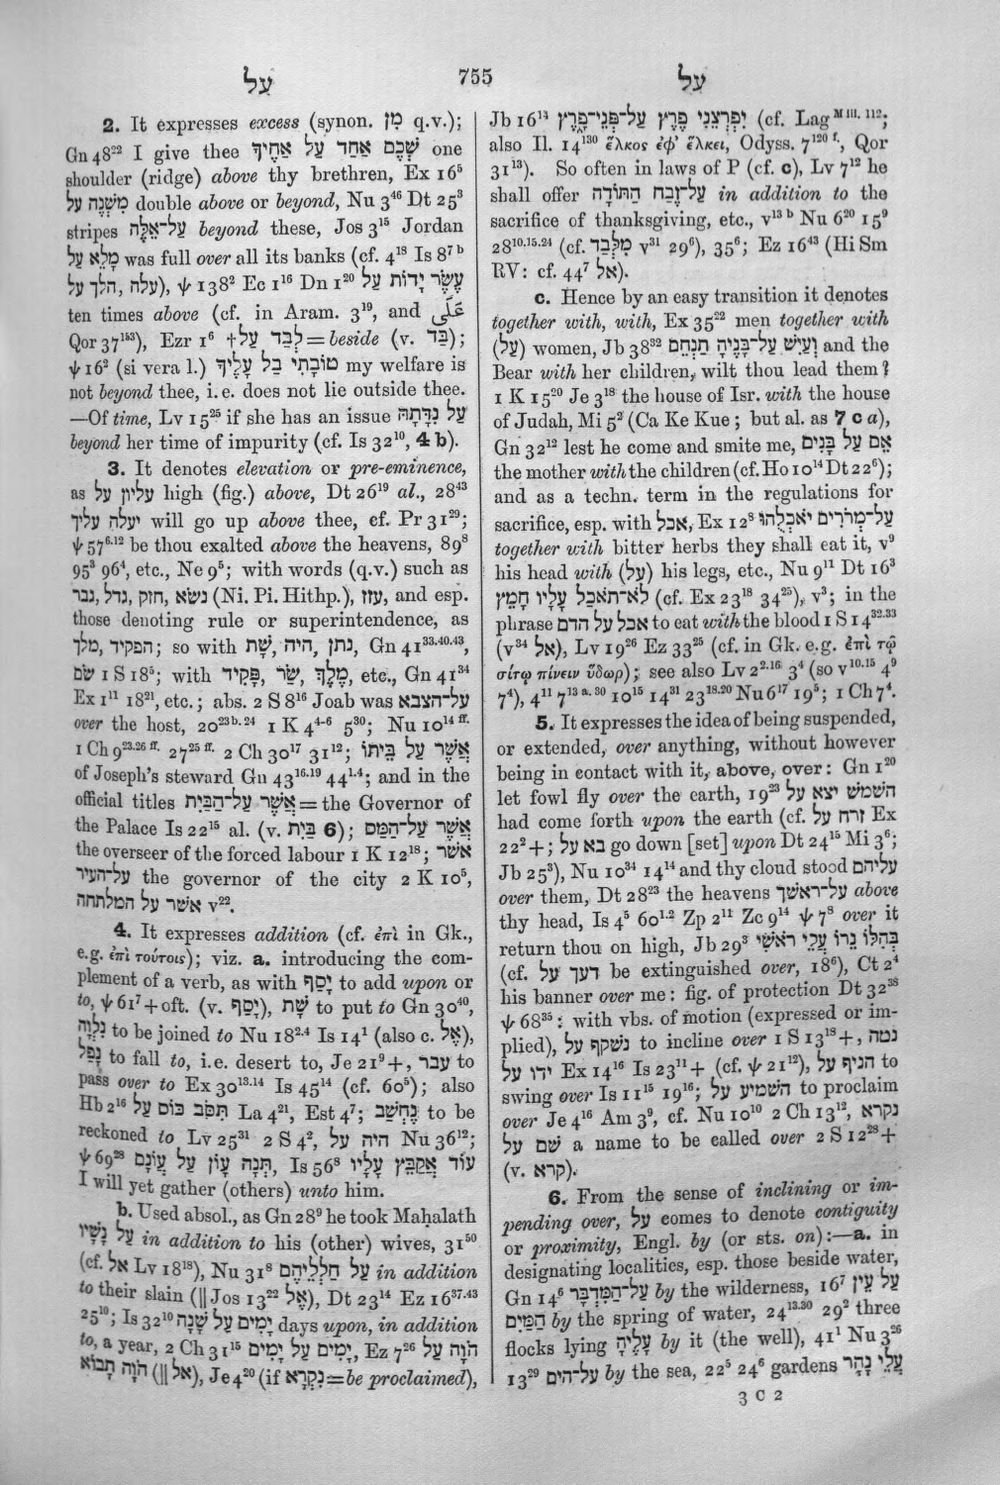 עַל 755 עַל
2. It expresses excess (synon. מִן q.v.);
Gn 48²² I give thee שְׁכֶם אַחַד עַל אַחֶיךָ one
shoulder (ridge) above thy brethren, Ex 16⁵
מִשְׁנֶה עַל double above or beyond, Nu 3⁴⁶ Dt 25³
stripes עַל־אֵלֶּה beyond these, Jos 3¹⁵ Jordan
מָלֵא עַל was full over all its banks (cf. 4¹⁸ Is 8⁷ᵇ
עלה, הלך על), ψ 138² Ec 1¹⁶ Dn 1²⁰ עֶשֶׂר יָדוֹת עַל
ten times above (cf. in Aram. 3¹⁹, and عَلَى
Qor 37¹⁵³), Ezr 1⁶ †לְבַד עַל = beside (v. בַּד);
ψ 16² (si vera l.) טוֹבָתִי בַּל עָלֶיךָ my welfare is
not beyond thee, i.e. does not lie outside thee.
—Of time, Lv 15²⁵ if she has an issue עַל נִדָּתָהּ
beyond her time of impurity (cf. Is 32¹⁰, 4 b).
3. It denotes elevation or pre-eminence,
as עליון על high (fig.) above, Dt 26¹⁹ al., 28⁴³
יעלה עליך will go up above thee, cf. Pr 31²⁹;
ψ 57⁶·¹² be thou exalted above the heavens, 89⁸
95³ 96⁴, etc., Ne 9⁵; with words (q.v.) such as
נשׂא, חזק, גדל, גבר (Ni. Pi. Hithp.), עזז, and esp.
those denoting rule or superintendence, as
מלך, הפקיד; so with נתן, היה, שָׁת, Gn 41³³·⁴⁰·⁴³,
שׂם 1 S 18⁵; with מֶלֶךְ, שַׂר, פָּקִיד, נגיד, etc., Gn 41³⁴
Ex 1¹¹ 18²¹, etc.; abs. 2 S 8¹⁶ Joab was על־הצבא
over the host, 20²³ᵇ·²⁴ 1 K 4⁴⁻⁶ 5³⁰; Nu 10¹⁴ ᶠᶠ·
1 Ch 9²³·²⁶ ᶠᶠ· 27²⁵ ᶠᶠ· 2 Ch 30¹⁷ 31¹²; אֲשֶׁר עַל בֵּיתוֹ
of Joseph's steward Gn 43¹⁶·¹⁹ 44¹·⁴; and in the
official titles אֲשֶׁר עַל־הַבַּיִת = the Governor of
the Palace Is 22¹⁵ al. (v. בַּיִת 6); אֲשֶׁר עַל־הַמַּס
the overseer of the forced labour 1 K 12¹⁸; אשׁר
על־העיר the governor of the city 2 K 10⁵,
אשר על המלתחה v²².
4. It expresses addition (cf. ἐπὶ in Gk.,
e.g. ἐπὶ τούτοις); viz. a. introducing the com-
plement of a verb, as with יָסַף to add upon or
to, ψ 61⁷ + oft. (v. יָסַף), שָׁת to put to Gn 30⁴⁰,
נִלְוָה to be joined to Nu 18²·⁴ Is 14¹ (also c. אֶל),
נָפַל to fall to, i.e. desert to, Je 21⁹ +, עבר to
pass over to Ex 30¹³·¹⁴ Is 45¹⁴ (cf. 60⁵); also
Hb 2¹⁶ תִּסֹּב כּוֹס עַל La 4²¹, Est 4⁷; נֶחְשַׁב to be
reckoned to Lv 25³¹ 2 S 4², היה על Nu 36¹²;
ψ 69²⁸ תְּנָה עָוֺן עַל עֲוֺנָם, Is 56⁸ עוֹד אֲקַבֵּץ עָלָיו
I will yet gather (others) unto him.
b. Used absol., as Gn 28⁹ he took Maḥalath
עַל נָשָׁיו in addition to his (other) wives, 31⁵⁰
(cf. אל Lv 18¹⁸), Nu 31⁸ עַל חַלְלֵיהֶם in addition
to their slain (‖ Jos 13²² אֶל), Dt 23¹⁴ Ez 16³⁷·⁴³
25¹⁰; Is 32¹⁰ יָמִים עַל שָׁנָה days upon, in addition
to, a year, 2 Ch 31¹⁵ יָמִים עַל יָמִים, Ez 7²⁶ הֹוָה עַל
הֹוָה תָּבוֹא (‖ אל), Je 4²⁰ (if נִקְרָא = be proclaimed),
Jb 16¹⁴ יִפְרְצֵנִי פֶרֶץ עַל־פְּנֵי־פָרֶץ (cf. Lag ᴹ ⁱⁱⁱ· ¹¹²;
also Il. 14¹³⁰ ἕλκος ἐφ' ἕλκει, Odyss. 7¹²⁰ ᶠ·, Qor
31¹³). So often in laws of P (cf. c), Lv 7¹² he
shall offer עַל־זֶבַח הַתּוֹדָה in addition to the
sacrifice of thanksgiving, etc., v¹³ ᵇ Nu 6²⁰ 15⁹
28¹⁰·¹⁵·²⁴ (cf. מִלְּבַד v³¹ 29⁶), 35⁶; Ez 16⁴³ (Hi Sm
RV: cf. 44⁷ אל).
c. Hence by an easy transition it denotes
together with, with, Ex 35²² men together with
(על) women, Jb 38³² וְעַיִשׁ עַל־בָּנֶיהָ תַנְחֵם and the
Bear with her children, wilt thou lead them?
1 K 15²⁰ Je 3¹⁸ the house of Isr. with the house
of Judah, Mi 5² (Ca Ke Kue; but al. as 7 c a),
Gn 32¹² lest he come and smite me, אֵם עַל בָּנִים
the mother with the children (cf. Ho 10¹⁴ Dt 22⁶);
and as a techn. term in the regulations for
sacrifice, esp. with אכל, Ex 12⁸ עַל־מְרֹרִים יֹאכְלֻהוּ
together with bitter herbs they shall eat it, v⁹
his head with (על) his legs, etc., Nu 9¹¹ Dt 16³
לֹא־תֹאכַל עָלָיו חָמֵץ (cf. Ex 23¹⁸ 34²⁵), v³; in the
phrase אכל על הדם to eat with the blood 1 S 14³²·³³
(v³⁴ אל), Lv 19²⁶ Ez 33²⁵ (cf. in Gk. e.g. ἐπὶ τῷ
σίτῳ πίνειν ὕδωρ); see also Lv 2²·¹⁶ 3⁴ (so v¹⁰·¹⁵ 4⁹
7⁴), 4¹¹ 7¹³ ᵃ· ³⁰ 10¹⁵ 14³¹ 23¹⁸·²⁰ Nu 6¹⁷ 19⁵; 1 Ch 7⁴.
5. It expresses the idea of being suspended,
or extended, over anything, without however
being in contact with it, above, over: Gn 1²⁰
let fowl fly over the earth, 19²³ השׁמשׁ יצא על
had come forth upon the earth (cf. זרח על Ex
22² +; בא על go down [set] upon Dt 24¹⁵ Mi 3⁶;
Jb 25³), Nu 10³⁴ 14¹⁴ and thy cloud stood עליהם
over them, Dt 28²³ the heavens על־ראשך above
thy head, Is 4⁵ 60¹·² Zp 2¹¹ Zc 9¹⁴ ψ 7⁸ over it
return thou on high, Jb 29³ בְּהִלּוֹ נֵרוֹ עֲלֵי רֹאשִׁי
(cf. דעך על be extinguished over, 18⁶), Ct 2⁴
his banner over me: fig. of protection Dt 32³⁸
ψ 68³⁵: with vbs. of motion (expressed or im-
plied), נשׁקף על to incline over 1 S 13¹⁸ +, נטה
ידו על Ex 14¹⁶ Is 23¹¹ + (cf. ψ 21¹²), הניף על to
swing over Is 11¹⁵ 19¹⁶; השמיע על to proclaim
over Je 4¹⁶ Am 3⁹, cf. Nu 10¹⁰ 2 Ch 13¹², נקרא
שם על a name to be called over 2 S 12²⁸ +
(v. קרא).
6. From the sense of inclining or im-
pending over, על comes to denote contiguity
or proximity, Engl. by (or sts. on):—a. in
designating localities, esp. those beside water,
Gn 14⁶ עַל־הַמִּדְבָּר by the wilderness, 16⁷ עַל עֵין
הַמַּיִם by the spring of water, 24¹³·³⁰ 29² three
flocks lying עָלֶיהָ by it (the well), 41¹ Nu 3²⁶
13²⁹ על־הים by the sea, 22⁵ 24⁶ gardens עֲלֵי נָהָר
3 C 2